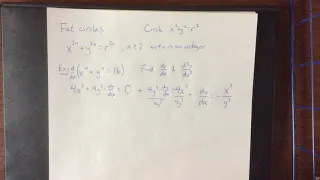 Fat circles Circle x²+y²=r²
x²ⁿ + y²ⁿ = r²ⁿ, n≥2 n is an integer
Ex: d/dx (x⁴ + y⁴ = 16) Find dy/dx & d²y/dx²
4x³ + 4y³ · dy/dx = 0 → 4y³/4y³ dy/dx = -4x³/4y³ → dy/dx = -x³/y³